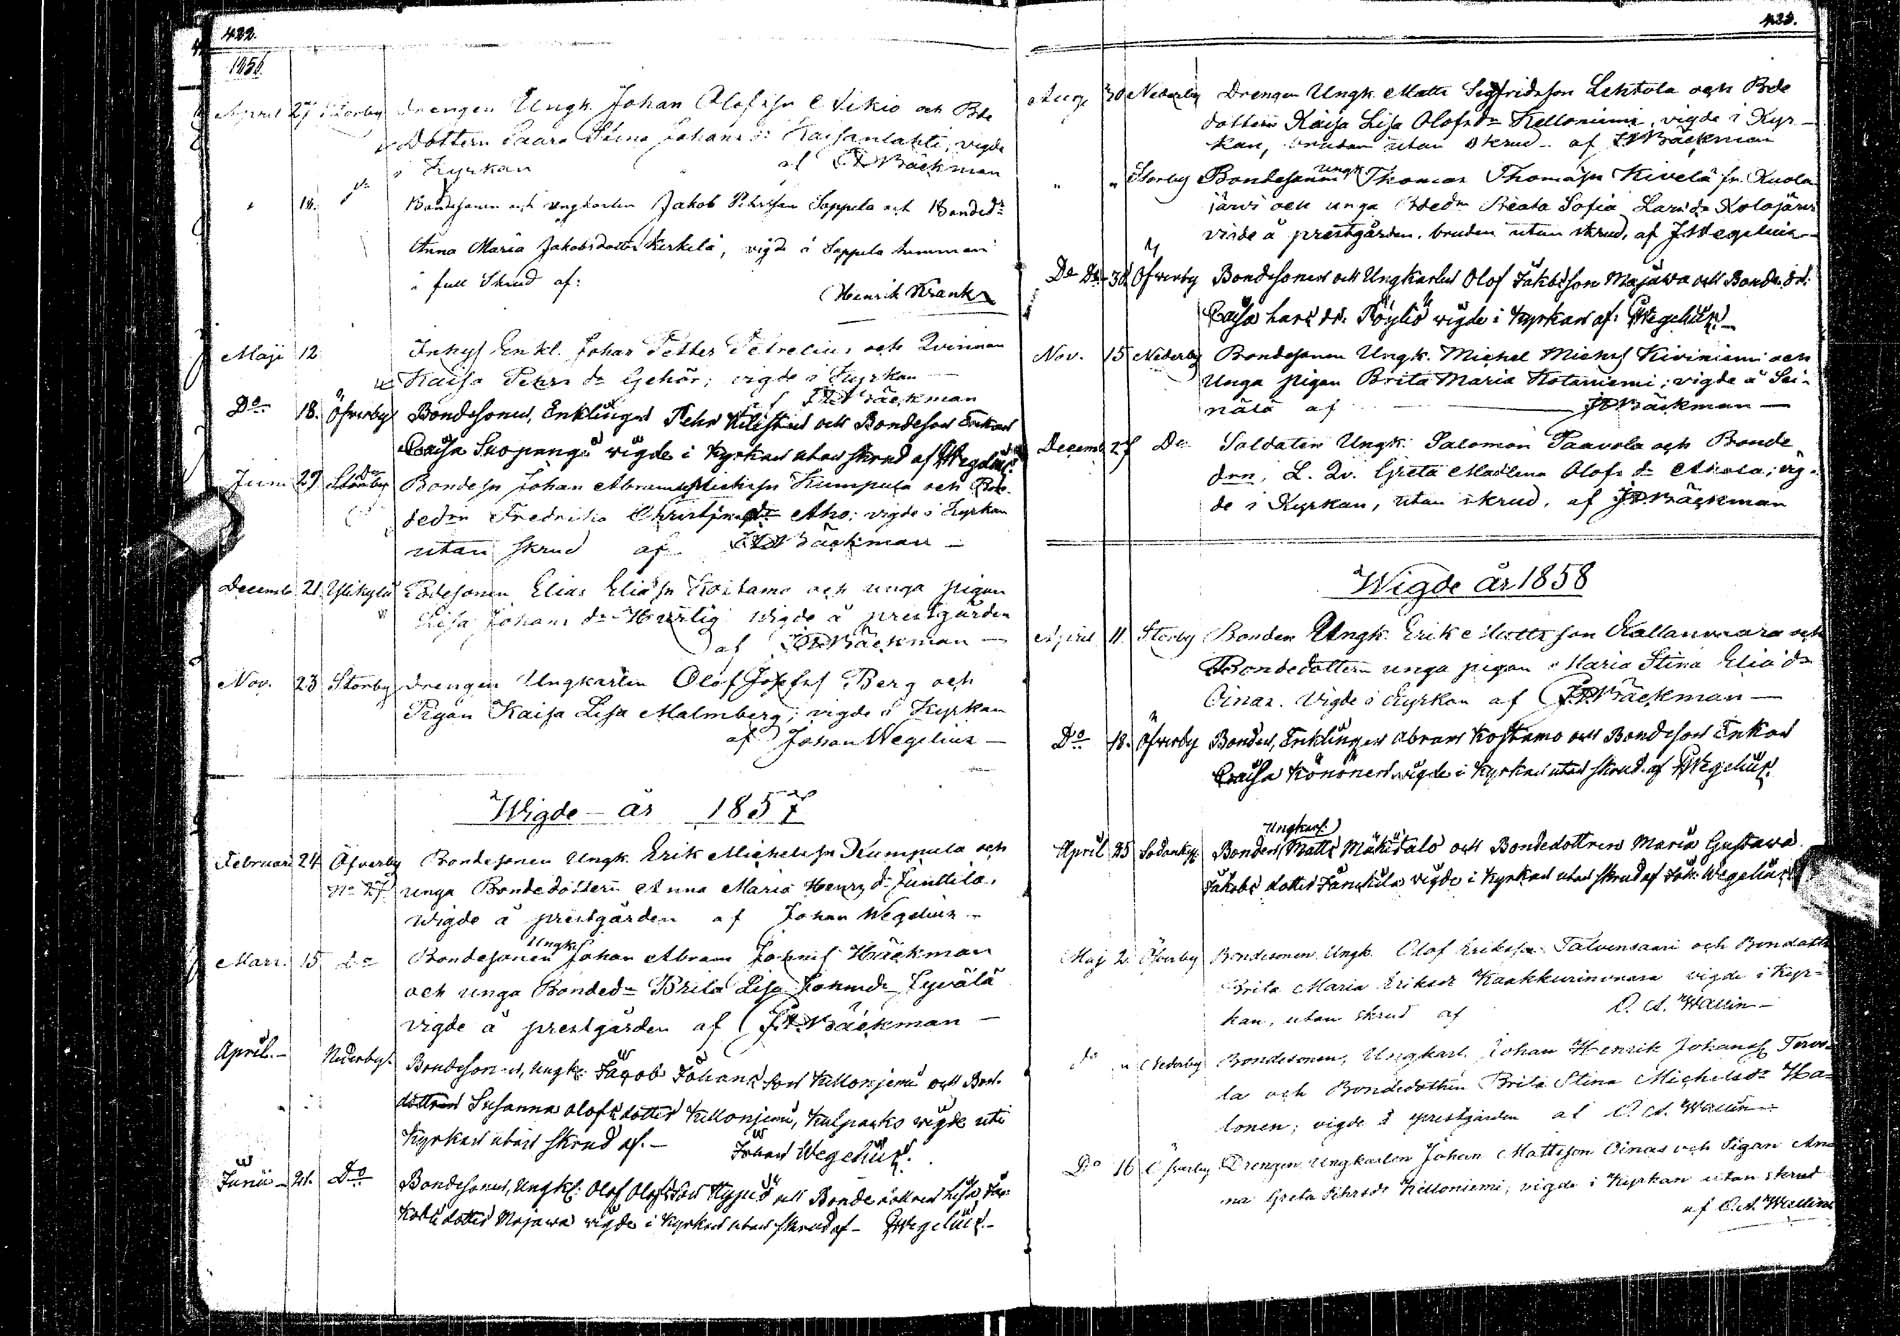 422.
1856
April 27 Storby Drengen Ungk. Johan Olofsson Nikio och Bde
Dottern Saara Stina Johans dr Kaisanlahti, vigde
i Kyrkan af J.W. Bäckman
" 18. Bondesonen och ungkarlen Jakob Pehrsson Soppela och Bonded:r
Anna Maria Jakobsdotter Kerkelä, vigde å Soppela hemman
i full Skrud af:
Henrik Krank
Maji 12 Inhys Enkl. Johan Petter Petrelius och Qvinnan
Kaisa Pehrs dr Gehör; vigde i Kyrkan
af Bäckman
Do 18. Öfverby Bondesonen, Enklingen Pehr och Bondeson Enkan
Caisa Suopanki vigde i Kyrkan utan skrud af Wegelius
Juni 29 Bondesn Johan Abram Kumpula och Bon-
dedrn Fredrika Aho; vigde i Kyrkan
utan skrud af Bäckman
Decemb 21 Ylikylä Bdesonen Elias Eliasn Kostamo och unga pigan
Lisa Johans dr Hurtig vigde å prestgården
af Bäckman
Nov. 23 Storby Drengen Ungkarlen Olof Josefss Berg och
Pigan Kaisa Lisa Malmberg; vigde i Kyrkan
af Johan Wegelius
Wigde år 1857
Februari 24 Öfverby Bondesonen Ungk. Erik Michelsn Kumpula och
No 27 unga Bondedottern Anna Maria Henr dr Junttila,
wigde å prestgården af Johan Wegelius
Mars. 15 do Bondesonen Ungk Johan Abram Häckman
och unga Bonded Brita Lisa Johansdr Jyvälä
vigde å prestgården af Bäckman
April. Nederby. Bondesonen, Ungk: Jacob Johansson Kellonjemi och Bon-
dottren Susanna Olofsdotter Kellonjemi, Kulpakko wigde uti
Kyrkan utan skrud af. Johan Wegelius.
Junii 21. Do Bondesonen, Ungk: Olof Olofsson och Bondedottren Lisa Ja-
kobsdotter Majawa wigde i Kyrkan utan skrud af Wegelius.
423.
Aug. 30 Nederby Drengen Ungk. Matts Sigfridsson Lehtola och Bde
dottern Kaisa Lisa Olofsdr Kelloniemi, vigde i Kyr-
kan, bruden utan skrud af Bäckman
" " Storby Bondesonen Ungk Thomas Thomasn Kivelä fr. Kuola-
järvi och unga Bdedn Beata Sofia Larsdr Kolojärvi
vigde å prestgården, bruden utan skrud, af J. Wegelius
Do Do 30. Öfverby Bondesonen och Ungkarlen Olof Jakobsson Majawa och Bonde dr.
Caisa Lars dr. Pöyliö wigde i Kyrkan af: Wegelius.
Nov. 15 Nederby Bondesonen Ungk. Michel Michels Kiviniemi och
Unga pigan Brita Maria Kotaniemi; vigde å Sei-
nälä af Bäckman
Decemb. 27 Do Soldaten Ungk. Salomon Paavola och Bonde
drn, L. Qv. Greta Madlena Olofs dr Ahola; vig-
de i Kyrkan, utan skrud, af Bäckman
Wigde år 1858
April 11. Storby Bonden Ungk. Erik Mattsson Kallanvaara och
Bondedottern unga pigan Maria Stina Elias dr
Oinas. Vigde i Kyrkan af Bäckman
Do 18. Öfverby Bonden, Enklingen Abram Kostamo och Bondeson Enkan
Caisa Könönen wigde i Kyrkan utan skrud af Wegelius.
April 25 Sodankyl Bonden Ungkarl Matts Mäkitalo och Bondedottren Maria Gustava
Jakobs dotter wigde i Kyrkan utan skrud af Joh. Wegelius
Maj 2. Öfverby Bondesonen Ungk. Olof Eriksson Talvensaari och Bondedottr
Brita Maria Eriksdr Kaakkurinvaara vigde i Kyr-
kan, utan skrud af O. A. Wallin
do " Nederby Bondesonen, Ungkarl. Johan Henrik Johanss Tervo-
la och Bondedottern Brita Stina Michelsdr Ha-
lonen; vigde å prestgården af O. A. Wallin
Do 16 Öfverby Drengen Ungkarlen Johan Mattsson Oinas och Pigan An-
na Greta Pehrsdr Kelloniemi, vigde i Kyrkan utan skrud
af O. A. Wallin